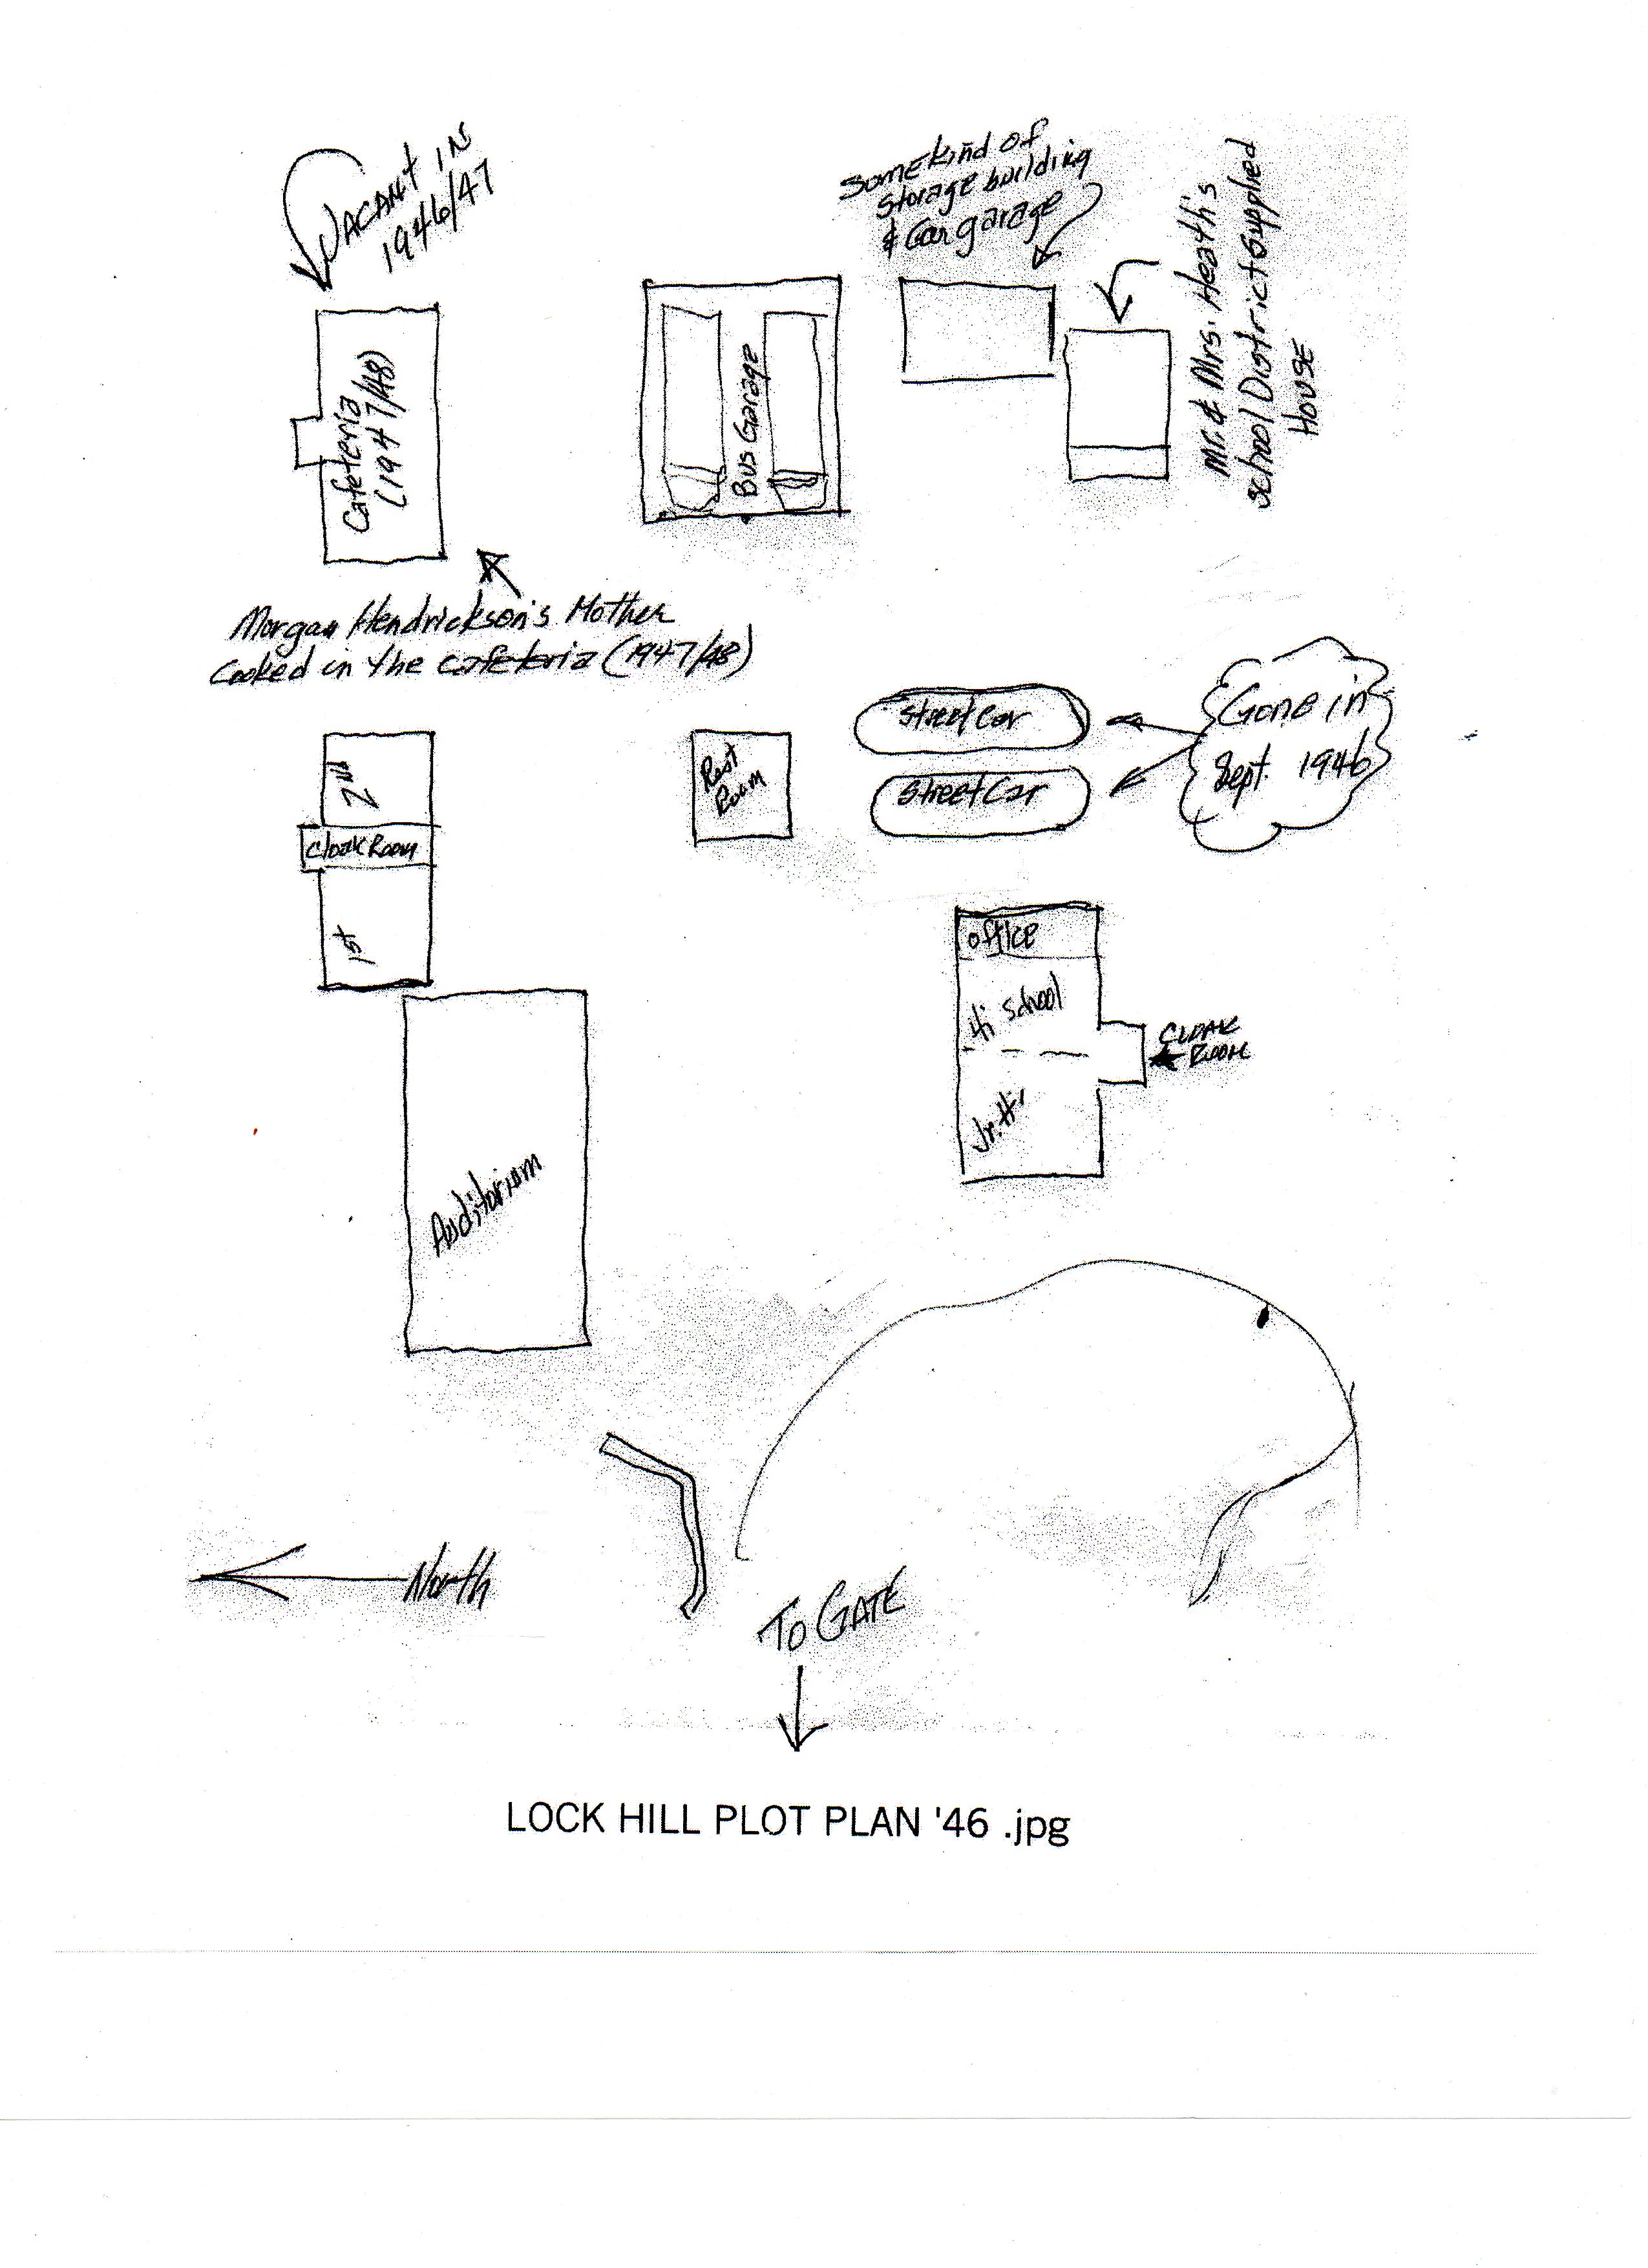 VACANT IN
1946/47
Some Kind of
Storage building
& Car garage
Mr. & Mrs. Heath's
School District Supplied
House
Cafeteria
(1947/48)
Bus Garage
Morgan Hendrickson's Mother
cooked in the cafeteria (1947/48)
2nd
Cloak Room
1st
Rest
Room
Street Car
Street Car
Gone in
Sept. 1946
office
Hi School
Jr. Hi
CLOAK
ROOM
Auditorium
North
To GATE
LOCK HILL PLOT PLAN '46 .jpg